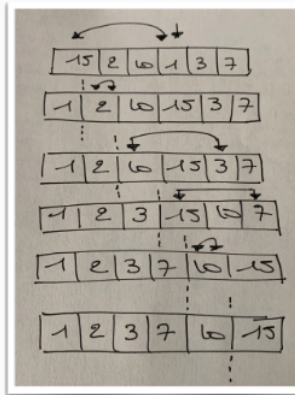 15 2 10 1 3 7
1 2 10 15 3 7
1 2 10 15 3 7
1 2 3 15 10 7
1 2 3 7 10 15
1 2 3 7 10 15